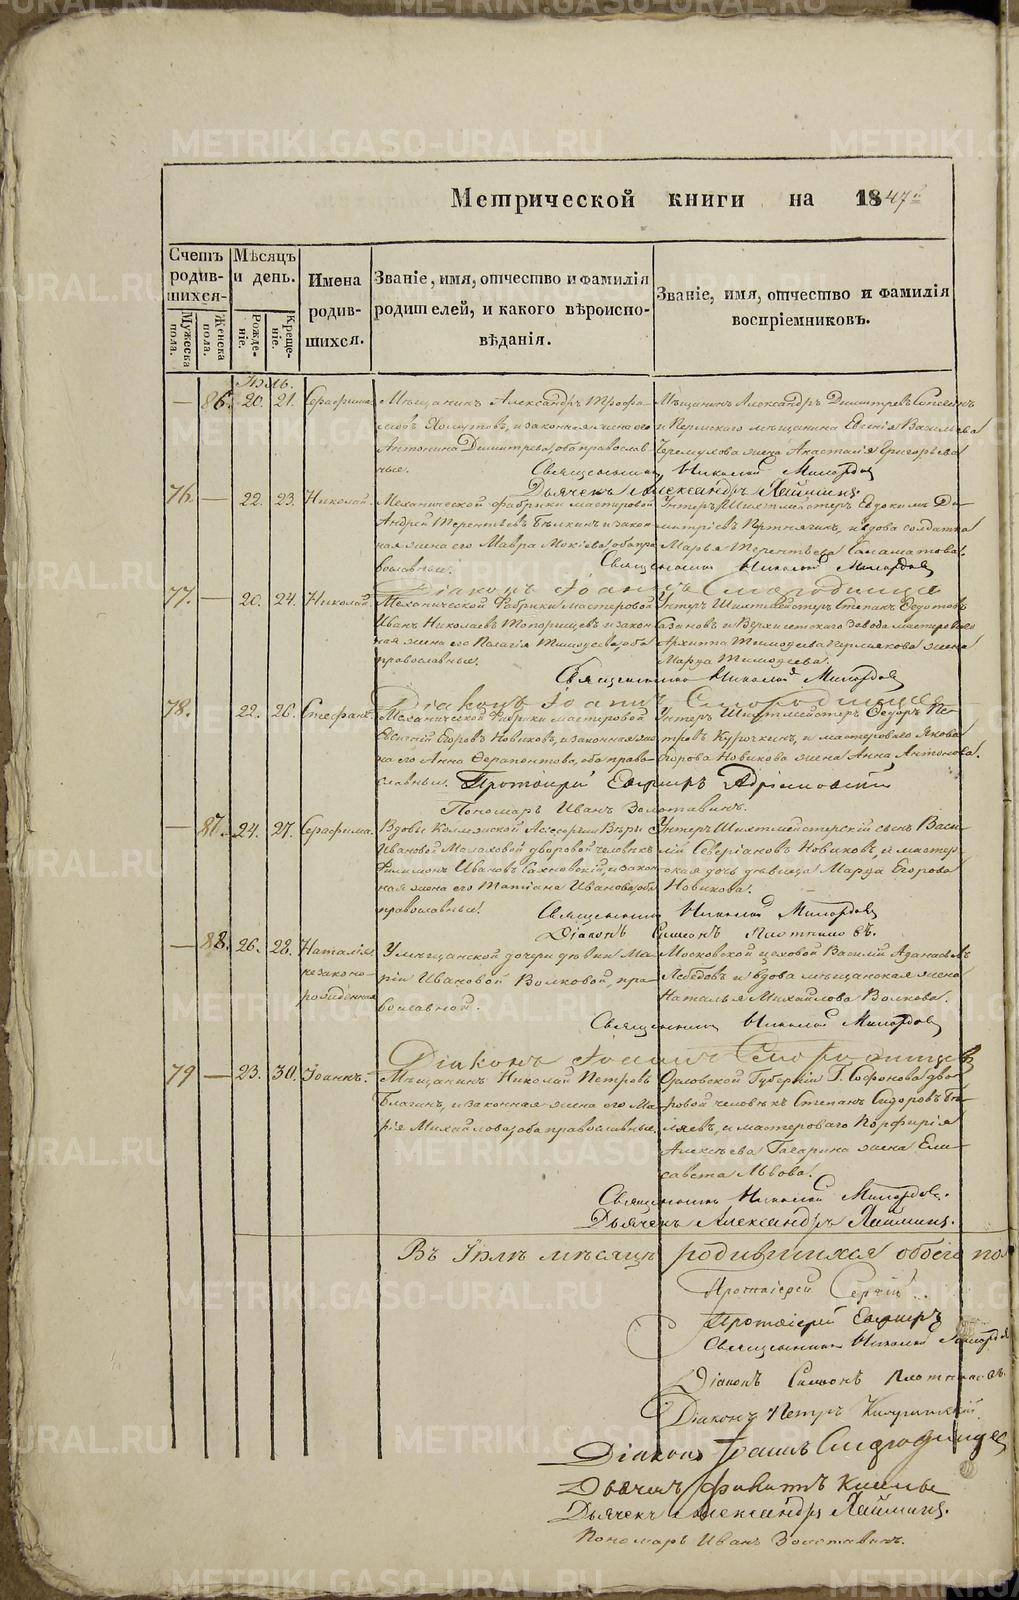 Метрической книги на 1847й
Счетъ родив-шихся.
Мѣсяцъ и день.
Имена родив-шихся.
Званіе, имя, отчество и фамилія родителей, и какого вѣроиспо-вѣданія.
Званіе, имя, отчество и фамилія воспріемниковъ.
Мужеска пола.
Женска пола.
Рожде-ніе.
Креще-ніе.
Іюль.
— 86. 20. 21. Серафима
Мѣщанинъ Александръ Трофи-
мовъ Хомутовъ, и законная жена его
Антонина Димитрева, оба православ-
ные.
Мѣщанинъ Александръ Димитревъ
и Пермскаго мѣщанина Евгенія Васильева
Черемухова жена Анастасія Григорьева
Священникъ Николай Милордовъ
Дьячекъ Александръ Хаймин
76. — 22. 23. Николай.
Механической фабрики мастеровой
Андрей Терентьевъ Бѣлкинъ и закон-
ная жена его Мавра Мокіева, оба пра-
вославные.
Унтеръ Шихтмейстеръ Евдокимъ Ди-
митріевъ и вдова солдатка
Марья Терентьева Саламатова.
Священникъ Николай Милордовъ
Діаконъ Іоаннъ Смородинцевъ
77. — 20. 24. Николай.
Механической Фабрики мастеровой
Иванъ Николаевъ Топорищевъ и закон-
ная жена его Пелагія Тимофеева, оба
православные.
Унтеръ Шихтмейстеръ Степанъ Федотовъ
и Верхисетскаго Завода мастероваго
Архиппа Тимофеева жена
Марфа Тимофеева.
Священникъ Николай Милордовъ
Діаконъ Іоаннъ Смородинцевъ
78. 22. 26. Стефанъ.
Механической Фабрики мастеровой
Евсигній Егоровъ Новиковъ, и законная же-
на его Анна Ферапонтова, оба право-
славные.
Унтеръ Шихтмейстеръ Федоръ Пе-
тровъ Курочкинъ, и мастероваго Якова
Егорова Новикова жена Анна Антонова.
Протоіерей Евфимъ Адріановскій
Пономарь Иванъ Золотавинъ.
— 87. 24. 27. Серафима.
Вдовы Колежской Асесорши Вѣры
Ивановой Малаховой дворовой человѣкъ
Филимонъ Ивановъ Сахновскій, и закон-
ная жена его Татіана Иванова, оба
православные.
Унтеръ Шихтмейстерскій сынъ Васи-
лій Северіановъ Новиковъ, и мастер-
ская дочь дѣвица Марфа Егорова
Новикова.
Священникъ Николай Милордовъ
Діаконъ Симеонъ Плотниковъ.
— 88. 26. 28. Наталія незаконо-рожденная
У мѣщанской дочери дѣвки Ма-
ріи Ивановой Волковой, пра-
вославной.
Московской цеховой Василій Афанасьевъ
Лебедовъ и вдова мѣщанская жена
Наталья Михайлова Волкова.
Священникъ Николай Милордовъ
Діаконъ Іоаннъ Смородинцевъ
79 — 23. 30. Іоаннъ.
Мѣщанинъ Николай Петровъ
Благинъ, и законная жена его Ма-
рія Михайлова, оба православные.
Орловской Губерніи Г. Сафонова дво-
ровой человѣкъ Степанъ Сидоровъ Бѣ-
ляевъ, и мастероваго Порфирія
Алексѣева Гагарина жена Ели-
савета Львова.
Священникъ Николай Милордовъ.
Дьячекъ Александръ Хаймин.
Въ Іюлѣ мѣсяцѣ родившихся обоего по
Протоіерей Сергій
Протоіерей Евфимъ
Священникъ Николай Милордовъ
Діаконъ Симеонъ Плотниковъ.
Діаконъ Петръ
Діаконъ Іоаннъ Смородинцев
Дьячекъ
Дьячекъ Александръ Хаймин.
Пономарь Иванъ Золотавинъ.
METRIKI.GASO-URAL.RU